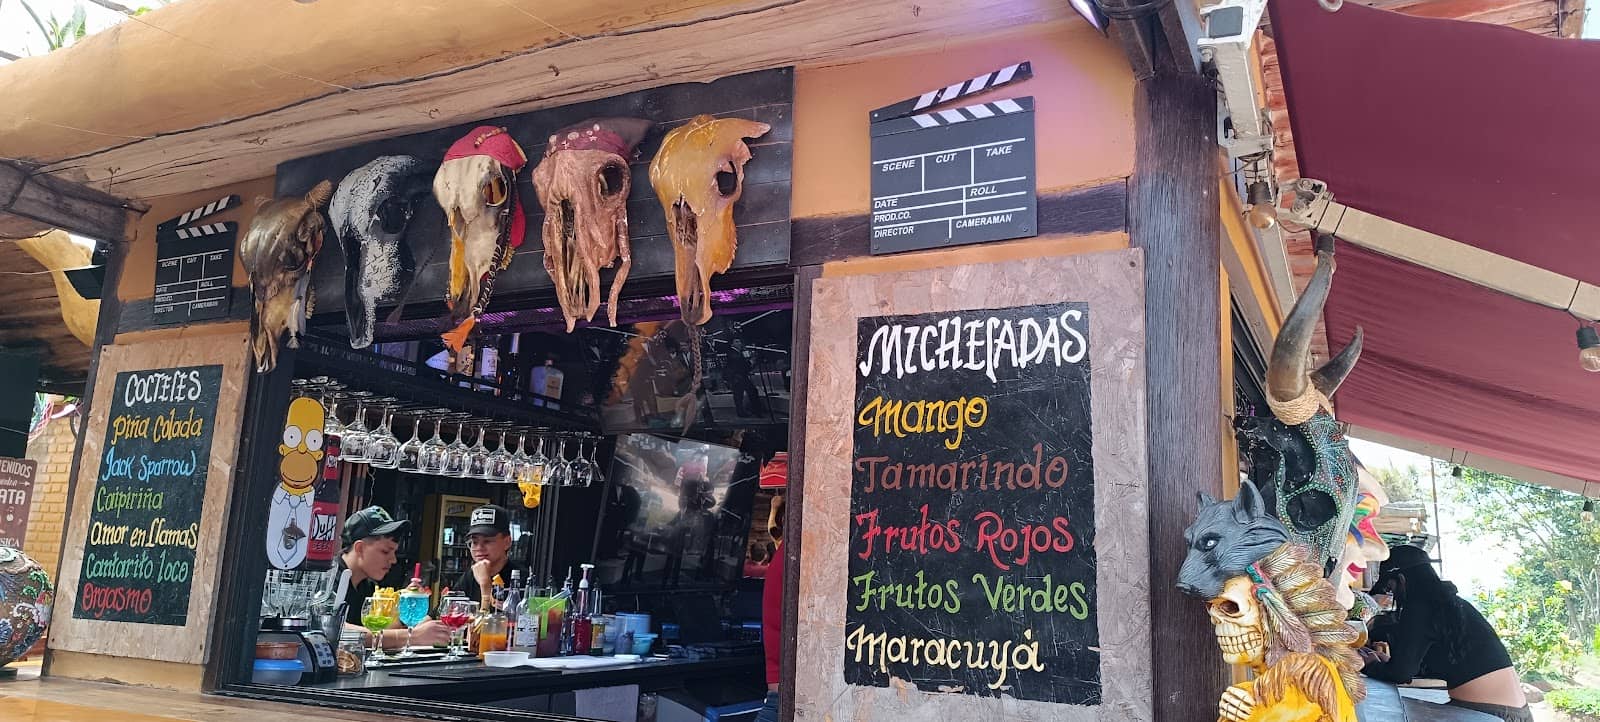 SCENE CUT TAKE
DATE ROLL
PROD.CO.
DIRECTOR CAMERAMAN
COCTELES
Piña Colada
Jack Sparrow
Caipiriña
Amor en Llamas
Cantarito loco
Orgasmo
Duff
SCENE CUT TAKE
DATE ROLL
PROD.CO.
DIRECTOR CAMERAMAN
MICHELADAS
Mango
Tamarindo
Frutos Rojos
Frutos Verdes
Maracuyá